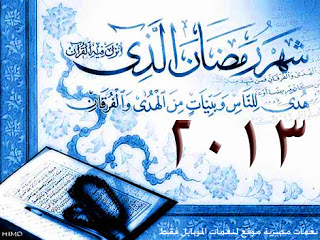 شَهْرُ رَمَضَانَ الَّذِي
أُنْزِلَ فِيهِ الْقُرْآنُ
هُدًى لِلنَّاسِ وَبَيِّنَاتٍ مِنَ الْهُدَىٰ وَالْفُرْقَانِ
٢٠١٣
نغمات مصرية موقع لنغمات الموبايل فقط